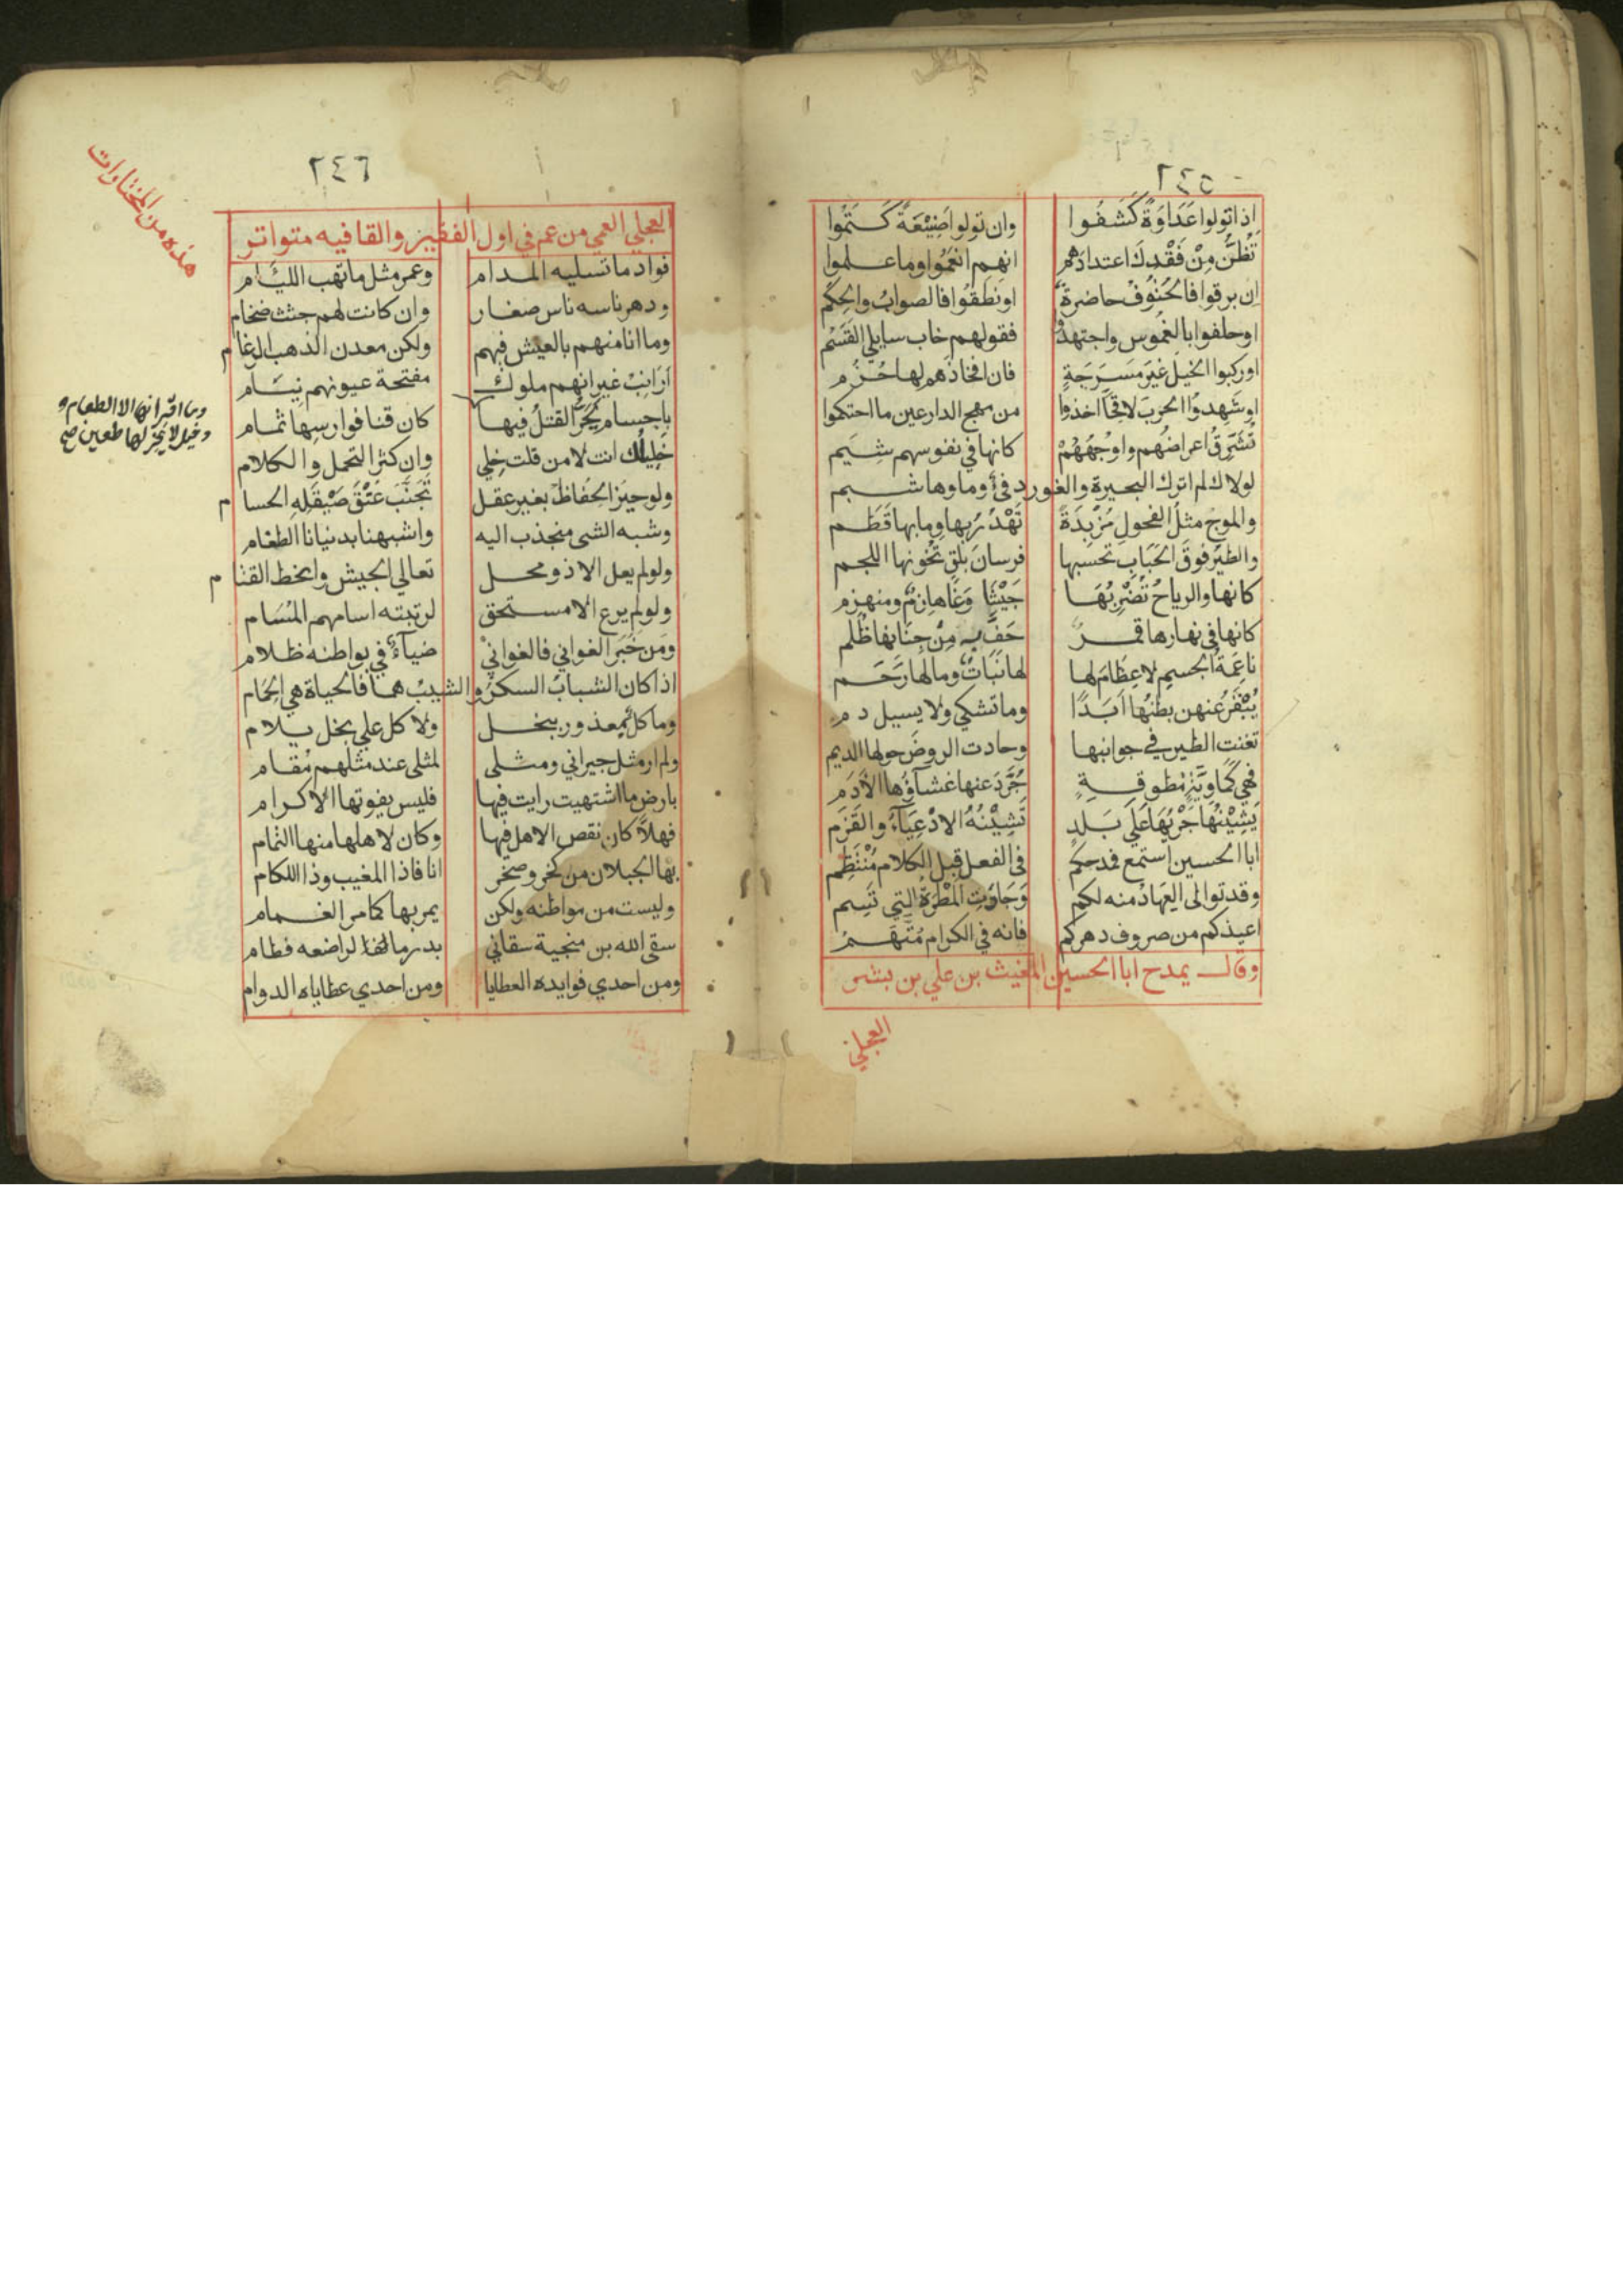 ٢٤٥
إذا تولوا عَدَاوَةً كَشَفُوا وان تولوا صَنِيْعَةً كَتَمُوا
تَظُنُّ مِنْ فَقْدِكَ اعتدادهم انهم انعَمُوا وما علموا
إن برقوا فالحُتُوفْ حاضرة او نطقُوا فالصوابُ والحِكَم
او حلفوا بالغموس واجتهدوا فقولهم خاب سايلي القَسَمُ
او ركبوا الخيلَ غيرَ مَسَرَجَةٍ فان افخاذَهم لها حُزُم
او شَهِدوُا الحربَ لاقحًا اخذوا من مهج الدارعين ما احتكموا
تُشَرِقُ اعراضُهم واوجُهُهُمْ كانها في نفوسهم شِيَم
لولاك لم اترك البحيرة والغور دفئ وماوها شبم
والموج مثلُ الفحولِ مُزْبِدَةً تَهْدُرُ بها وما بها قَطَم
والطيرُ فوقَ الحَبَابِ تحسَبها فرسانَ بلقٍ تَخونها اللجم
كانها والرياحُ تَضْرِبُهَا جَيْشَا وَغًا هازمٌ ومنهزم
كانها في نهارها قمرٌ حَفَّ به مِنْ جِنَانها ظُلم
ناعِمَةُ الجسمِ لا عِظَامَ لها لها نَبَاتٌ وما لها رَحَم
يُبْقَرُ عنهن بطنُها أبَدًا وما تشكي ولا يسيل دم
تغنت الطير في جوانبها وجادت الروضَ حولها الديم
فهي كَمَاوِيَّةٍ مُطوقةٍ جُرَّدَ عنها غشاؤُها الأدَم
يَشِيْنُهَا جَرْيُهَا عَلَى بَلدٍ تَشِيْنُهُ الادْعِيَآءُ والقَزَم
ابا الحسين استمع فمدحكم في الفعل قبل الكلام مُنْتَظِم
وقد توالى العِهَادُ منه لكم وَجَادَتِ المَطْرَةُ التي تَسِم
اعيذكم من صروف دهركم فانه في الكرام مُتَّهَمْ
وقال يمدح ابا الحسين المغيث بن علي بن بشر
العجلي
٢٤٦
العجلي العمي من عم في اول الفقيز والقافيه متواتر
هذه من المختارات
فواد ما تسليه المدام وعمر مثل ما تهب الليام
ودهر ناسه ناس صغار وان كانت لهم جثث ضخام
وما انا منهم بالعيش فيهم ولكن معدن الذهب الرغام
أرَانِبُ غير انهم ملوك مفتحة عيونهم نيام
باجسام يَحَرُّ القتلُ فيها وما اقرانها الا الطعام و
وخيل لا يخر لها طعين صح كان قنا فوارسها ثمام
خَلِيلُك انت لا من قلت خِلي وان كثر التجمل والكلام
ولو حِيزَ الحُفاظُ بغير عقل تَجَنَّبَ عَنْقَ صَيْقَلِهِ الحسام
وشبه الشي منجذب اليه واشبهنا بدنيانا الطغام
ولو لم يعل الا ذو محل تعالي الجيش وانحط القتام
ولو لم يرع الا مستحق لرتبته اسامهم المُسَام
ومَن خَبَرَ الغواني فالغواني ضيآءٌ في بواطنه ظلام
اذا كان الشبابُ السكرَ والشيبُ هما فالحياة هي الحِمَام
وما كل بمعذور ببخل ولا كل علي بخل يلام
ولم ار مثل جيراني ومثلى لمثلى عند مثلهم مُقام
بارض ما اشتهيت رايت فيها فليس يفوتها الا كرام
فهلاّ كان نقص الاهل فيها وكان لاهلها منها التمام
بها الجبلان من فخر وصخر انافا ذا المغيب وذا اللكام
وليست من مواطنه ولكن يمر بها كما مر الغمام
سقى الله بن منجية سقاني بدر ما لراضعه فطام
ومن احدي فوايده العطايا ومن احدي عطاياه الدوام